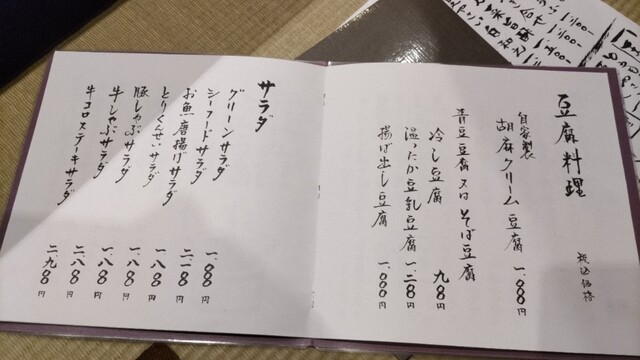 豆腐料理
税込価格
自家製
胡麻クリーム豆腐 一、〇八〇円
青豆豆腐又はそば豆腐
冷し豆腐 九八〇円
温ったか豆乳豆腐 一、二八〇円
揚げ出し豆腐 一、〇〇〇円
サラダ
グリーンサラダ 一、〇八〇円
シーフードサラダ 二、一八〇円
お魚唐揚げサラダ 一、八八〇円
とりくんせいサラダ 一、八八〇円
豚しゃぶサラダ 一、八八〇円
牛しゃぶサラダ 二、八八〇円
牛コロステーキサラダ 二、九八〇円